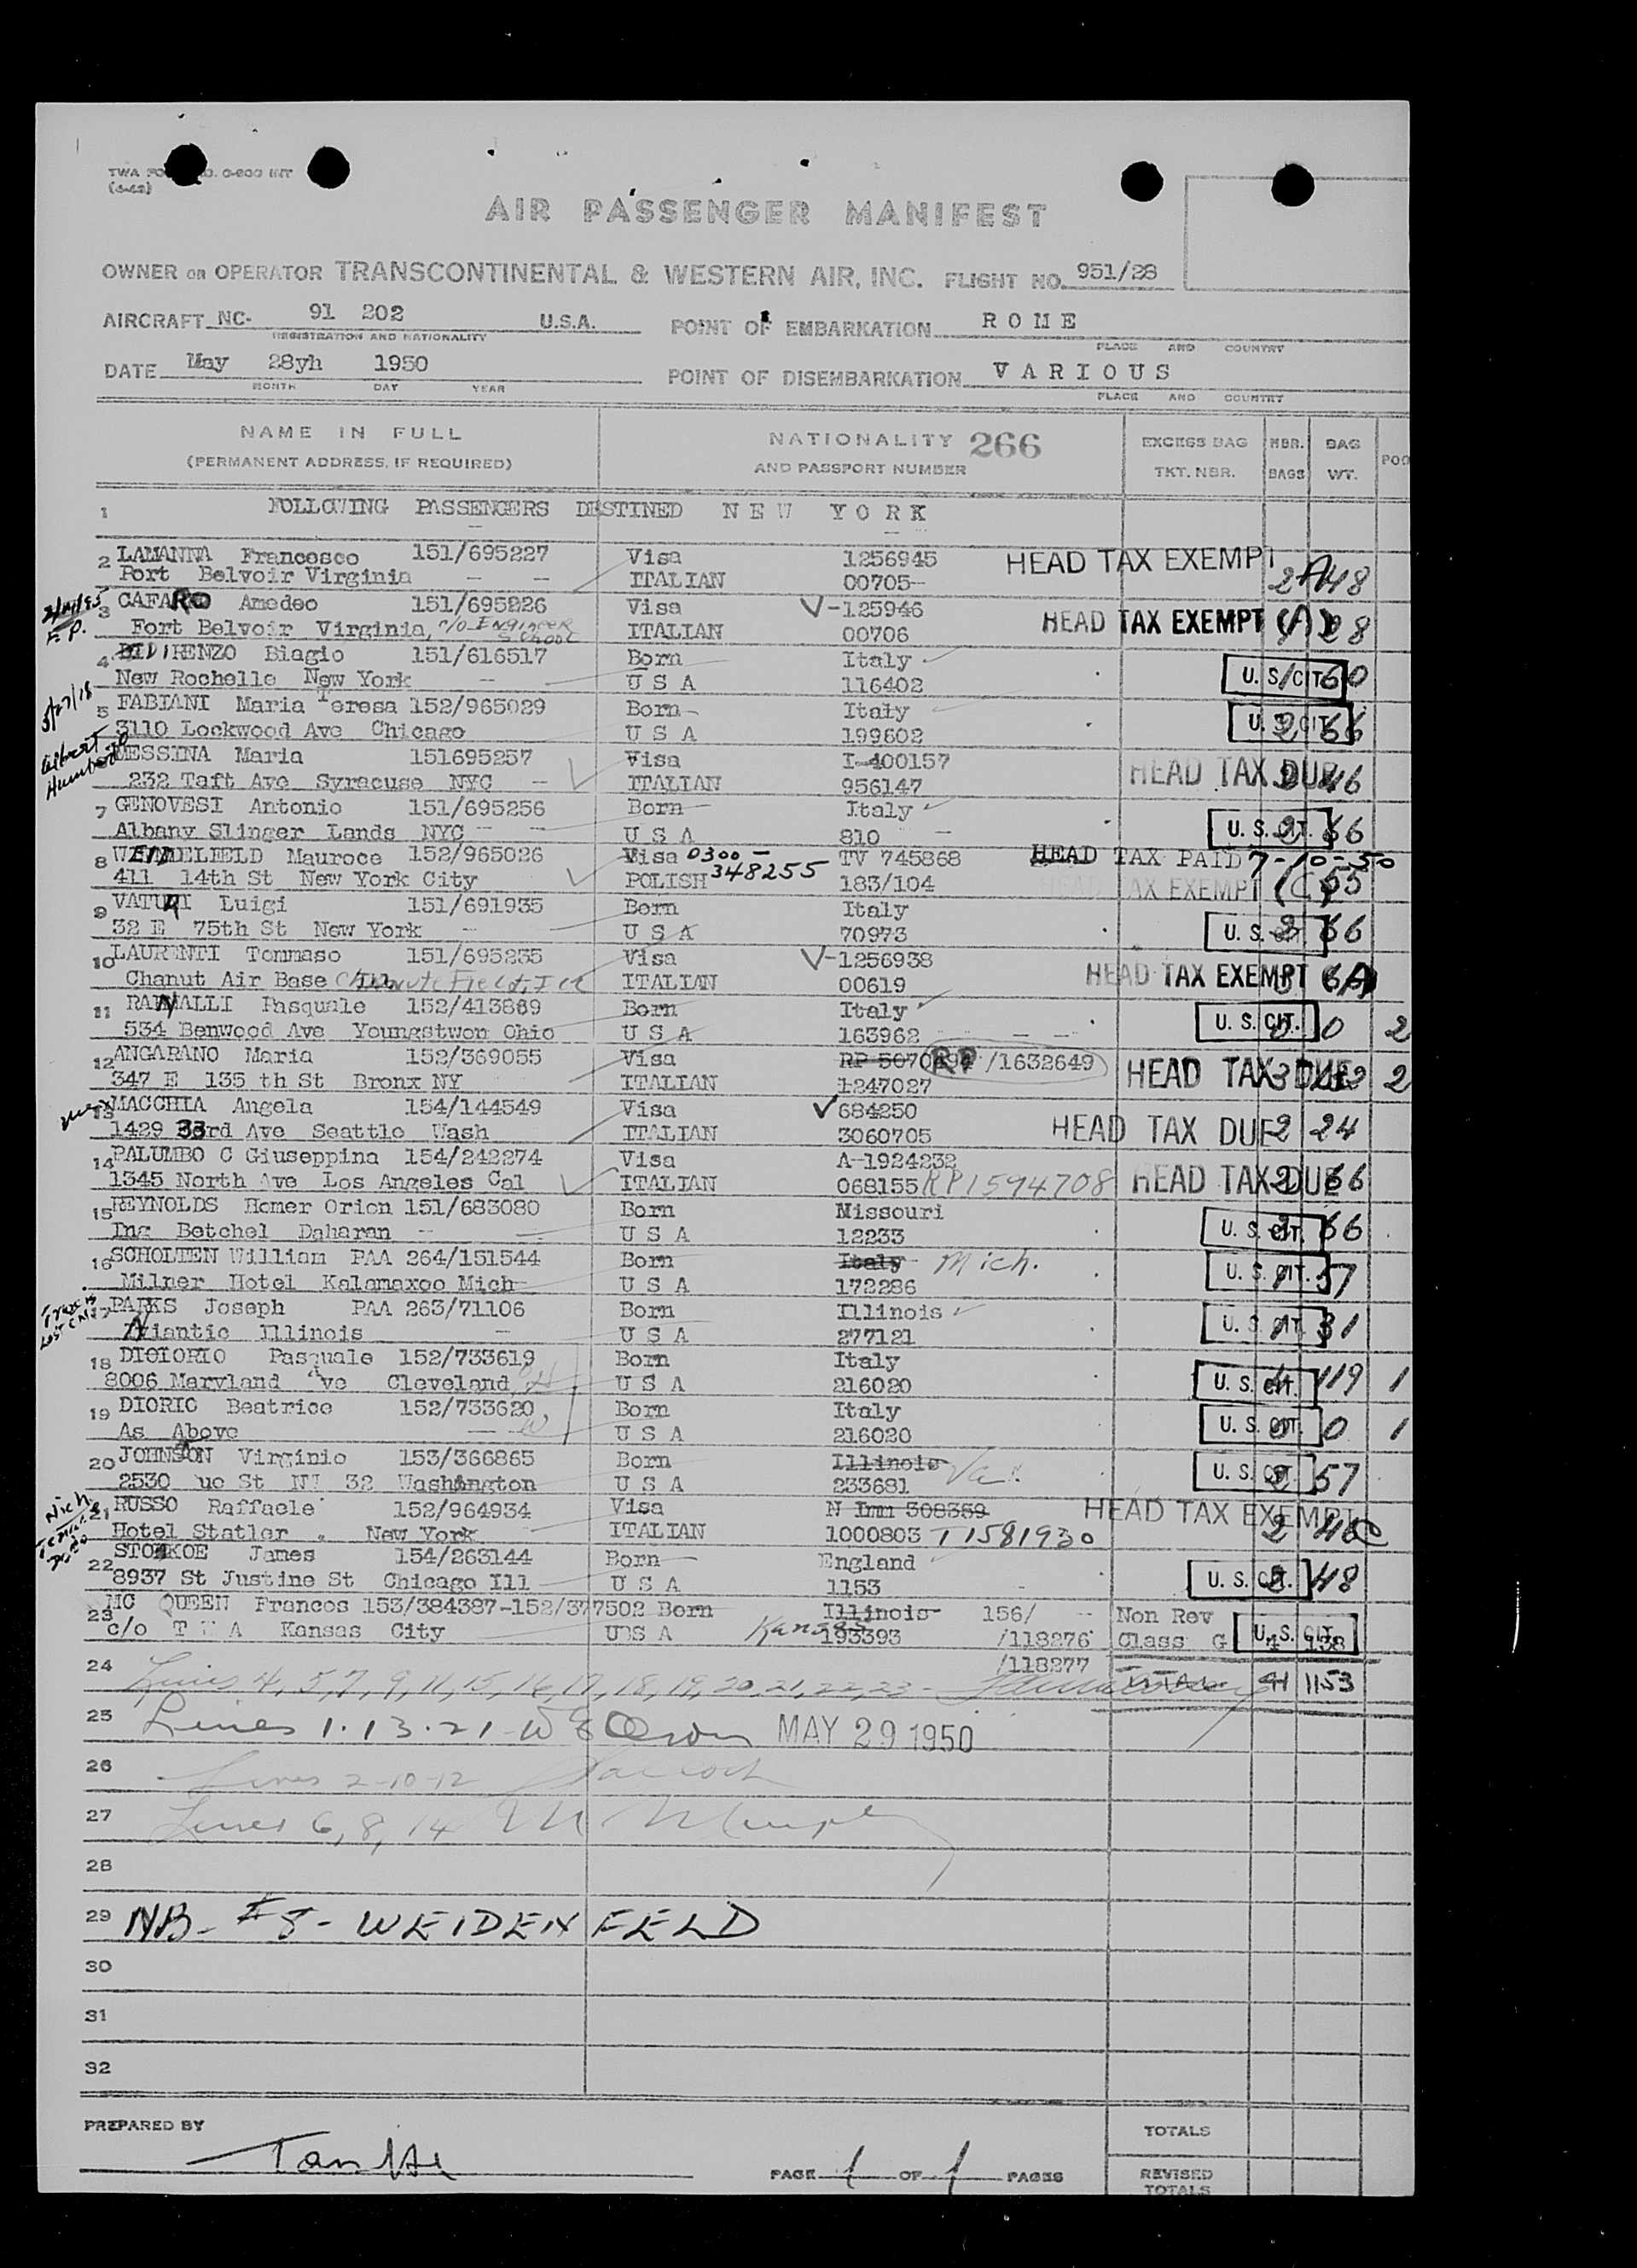 TWA FO 0-800 INT
(4-48)
AIR PASSENGER MANIFEST
OWNER OR OPERATOR TRANSCONTINENTAL & WESTERN AIR, INC. FLIGHT NO. 951/28
AIRCRAFT NC- 91 202 U.S.A. POINT OF EMBARKATION ROME
REGISTRATION AND NATIONALITY PLACE AND COUNTRY
DATE May 28yh 1950 POINT OF DISEMBARKATION VARIOUS
MONTH DAY YEAR PLACE AND COUNTRY
NAME IN FULL NATIONALITY 266 EXCESS BAG NBR. BAG
(PERMANENT ADDRESS, IF REQUIRED) AND PASSPORT NUMBER TKT. NBR. BAGS WT. POO
1 FOLLOWING PASSENGERS DESTINED NEW YORK
2 LAMANNA Francesco 151/695227 Visa 1256945 HEAD TAX EXEMPT
Fort Belvoir Virginia ITALIAN 00705 2 A 48
3 CAFARO Amedeo 151/695226 Visa V-125946 HEAD TAX EXEMPT (A)
Fort Belvoir Virginia, c/o Engineer School ITALIAN 00706 28
4 DIRENZO Biagio 151/616517 Born Italy
New Rochelle New York U S A 116402 U. S. CIT. 60
5 FABIANI Maria Teresa 152/965029 Born Italy
3110 Lockwood Ave Chicago U S A 199602 U. S. CIT. 2 66
MESSINA Maria 151695257 Visa I-400157
232 Taft Ave Syracuse NYC ITALIAN 956147 HEAD TAX DUE 46
7 GENOVESI Antonio 151/695256 Born Italy
Albany Slinger Lands NYC U S A 810 U. S. CIT. 66
8 Mauroce 152/965026 Visa 0300- TV 745868 HEAD TAX PAID 7-10-50
411 14th St New York City POLISH 348255 183/104 HEAD TAX EXEMPT (C) 55
9 VATURI Luigi 151/691935 Born Italy
32 E 75th St New York U S A 70973 U. S. CIT. 2 66
10 LAURENTI Tommaso 151/695235 Visa V-1256938
Chanut Air Base Chanute Field, Ill ITALIAN 00619 HEAD TAX EXEMPT (A)
11 RANALLI Pasquale 152/413889 Born Italy
534 Benwood Ave Youngstwon Ohio U S A 163962 U. S. CIT. 0 0 2
12 ANGARANO Maria 152/369055 Visa RP /1632649
347 E 135 th St Bronx NY ITALIAN 1247027 HEAD TAX DUE 3 2
13 MACCHIA Angela 154/144549 Visa 684250
1429 33rd Ave Seattle Wash ITALIAN 3060705 HEAD TAX DUE 2 24
14 PALUMBO C Giuseppina 154/242274 Visa A-1924232
1345 North Ave Los Angeles Cal ITALIAN 068155 RP1594708 HEAD TAX DUE 2 66
15 REYNOLDS Homer Orion 151/683080 Born Missouri
Ing Betchel Daharan U S A 12233 U. S. CIT. 2 66
16 SCHOLTEN William PAA 264/151544 Born Italy Mich.
Milner Hotel Kalamaxoo Mich U S A 172286 U. S. CIT. 57
PARKS Joseph PAA 263/71106 Born Illinois
Atlantic Illinois U S A 277121 U. S. CIT. 31
18 DIGIORIO Pasquale 152/733619 Born Italy
8006 Maryland Ave Cleveland U S A 216020 U. S. CIT. 4 119 1
19 DIORIO Beatrice 152/733620 Born Italy
As Above U S A 216020 U. S. CIT. 0 0 1
20 JOHNSON Virginio 153/366865 Born Illinois Va.
2530 ue St NW 32 Washington U S A 233681 U. S. CIT. 2 57
21 RUSSO Raffaele 152/964934 Visa N Imm 308359 HEAD TAX EXEMPT
Hotel Statler . New York ITALIAN 1000803 T1581930 2 46 C
22 James 154/263144 Born England
8937 St Justine St Chicago Ill U S A 1153 U. S. CIT. 48
23 MC QUEEN Frances 153/384387-152/377502 Born Illinois 156/ Non Rev
c/o T W A Kansas City UBS A Kansas 193393 /118276 Class G U. S. CIT. 138
24 /118277 TOTAL 41 1153
Lines 4, 5, 7, 9, 11, 15, 16, 17, 18, 19, 20, 21, 22, 23
25 Lines 1.13.21 MAY 29 1950
26 Lines 2-10-12
27 Lines 6, 8, 14
28
29 NB- #8- WEIDENFELD
30
31
32
PREPARED BY TOTALS
PAGE 1 OF 1 PAGES REVISED
TOTALS